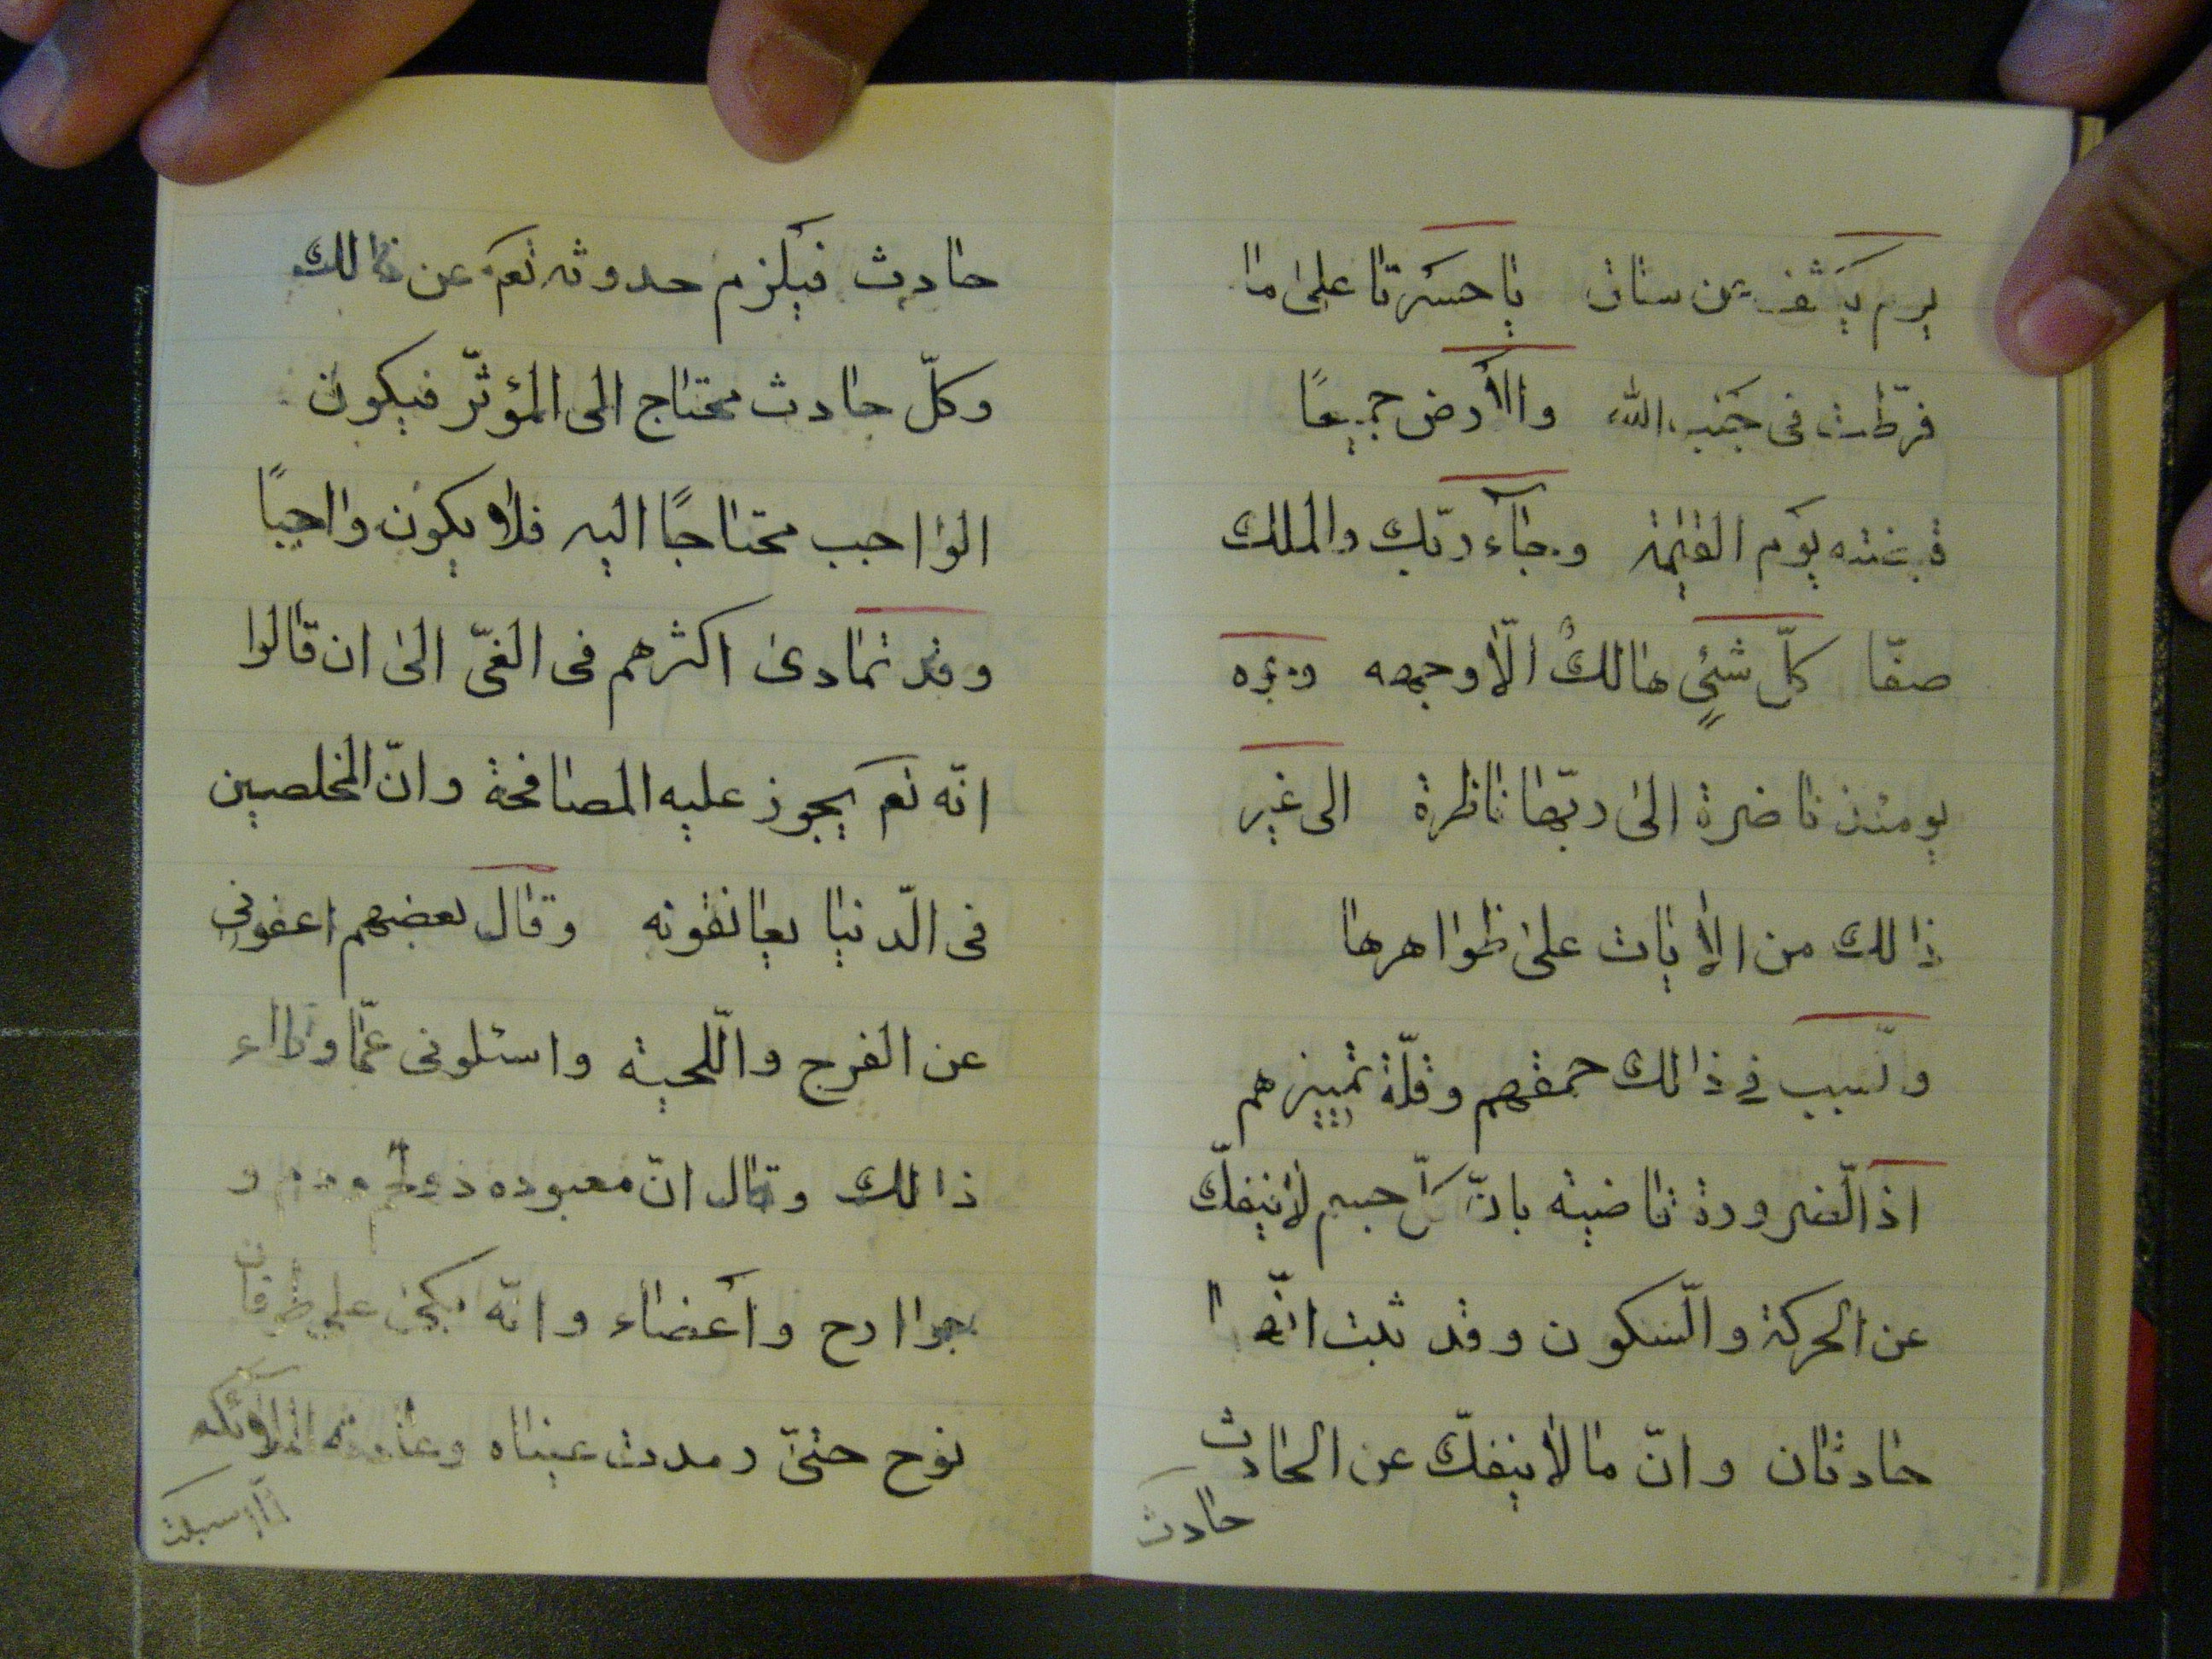 يوم يكشف عن ساق يا حسرتا على ما
فرّطت فى جنب الله والأرض جميعًا
قبضته يوم القيمة وجآء ربّك والملك
صفّا كلّ شئٍ هالكٌ الّا وجهه وجوه
يومئذ ناضرة الى ربّها ناظرة الى غير
ذالك من الأيات على ظواهرها
ولسبب في ذالك حمقهم وقلّة تمييزهم
اذ الّضرورة قاضية بانّ كلّ جسم لا ينفكّ
عن الحركة والّسكون وقد ثبت انّها
حادثان وانّ ما لا ينفكّ عن الحادث
حادث
حادث فيلزم حدوثه تعم عن ذالك
وكلّ حادث محتاج الى المؤثّر فيكون
الواجب محتاجًا اليه فلا يكون واجبًا
وقد تمادى اكثرهم فى الغىّ الى ان قالوا
انّه تعم يجوز عليه المصافحة وانّ المخلصين
فى الّدنيا يعانقونه وقال بعضهم اعفونى
عن الفرج والّلحية واسئلونى عمّا وراء
ذالك وقال انّ معبوده ذو لحم ودم و
جوارح وأعضاء وانّه بكى على طوفان
نوح حتىّ رمدت عيناه وعادته الملائكه